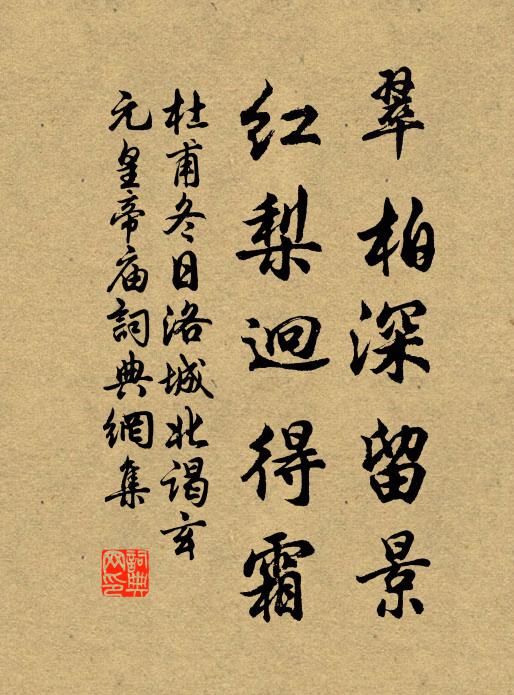 翠柏深留景
红梨迥得霜
杜甫冬日洛城北谒玄
元皇帝庙詞典網集
詞典
网印